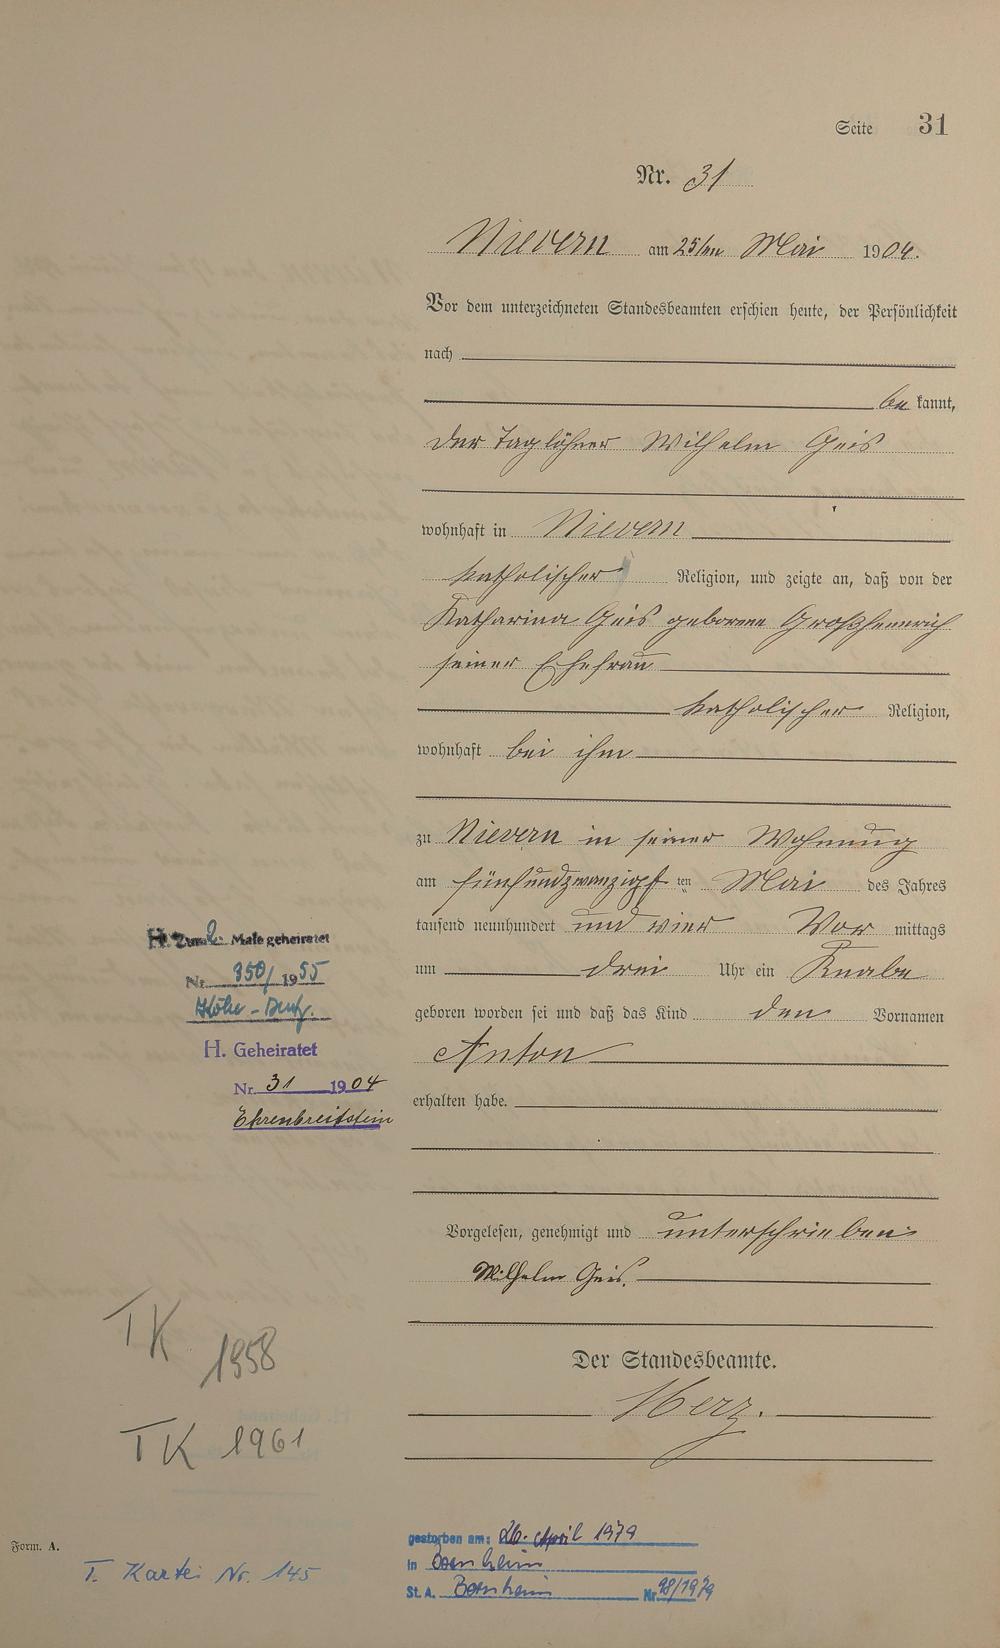 Seite 31
Nr. 31
Nievern am 25ten Mai 1904.
Vor dem unterzeichneten Standesbeamten erschien heute, der Persönlichkeit
nach
be kannt,
der Taglöhner Wilhelm Geis
wohnhaft in Nievern
katholischer Religion, und zeigte an, daß von der
Katharina Geis geborene Großhennrich
seiner Ehefrau
katholischer Religion,
wohnhaft bei ihm
zu Nievern in seiner Wohnung
am fünfundzwanzigst ten Mai des Jahres
tausend neunhundert und vier Vor mittags
um drei Uhr ein Knabe
geboren worden sei und daß das Kind den Vornamen
Anton
erhalten habe.
Vorgelesen, genehmigt und unterschrieben
Wilhelm Geis.
Der Standesbeamte.
Herz.
H. Zum 2. Male geheiratet
Nr. 350/1955
Köln-Deutz.
H. Geheiratet
Nr. 31 1904
Ehrenbreitstein
TK 1958
TK 1961
Form. A.
T. Kartei Nr. 145
gestorben am: 26. April 1979
in
St. A. Bornheim Nr. 98/1979